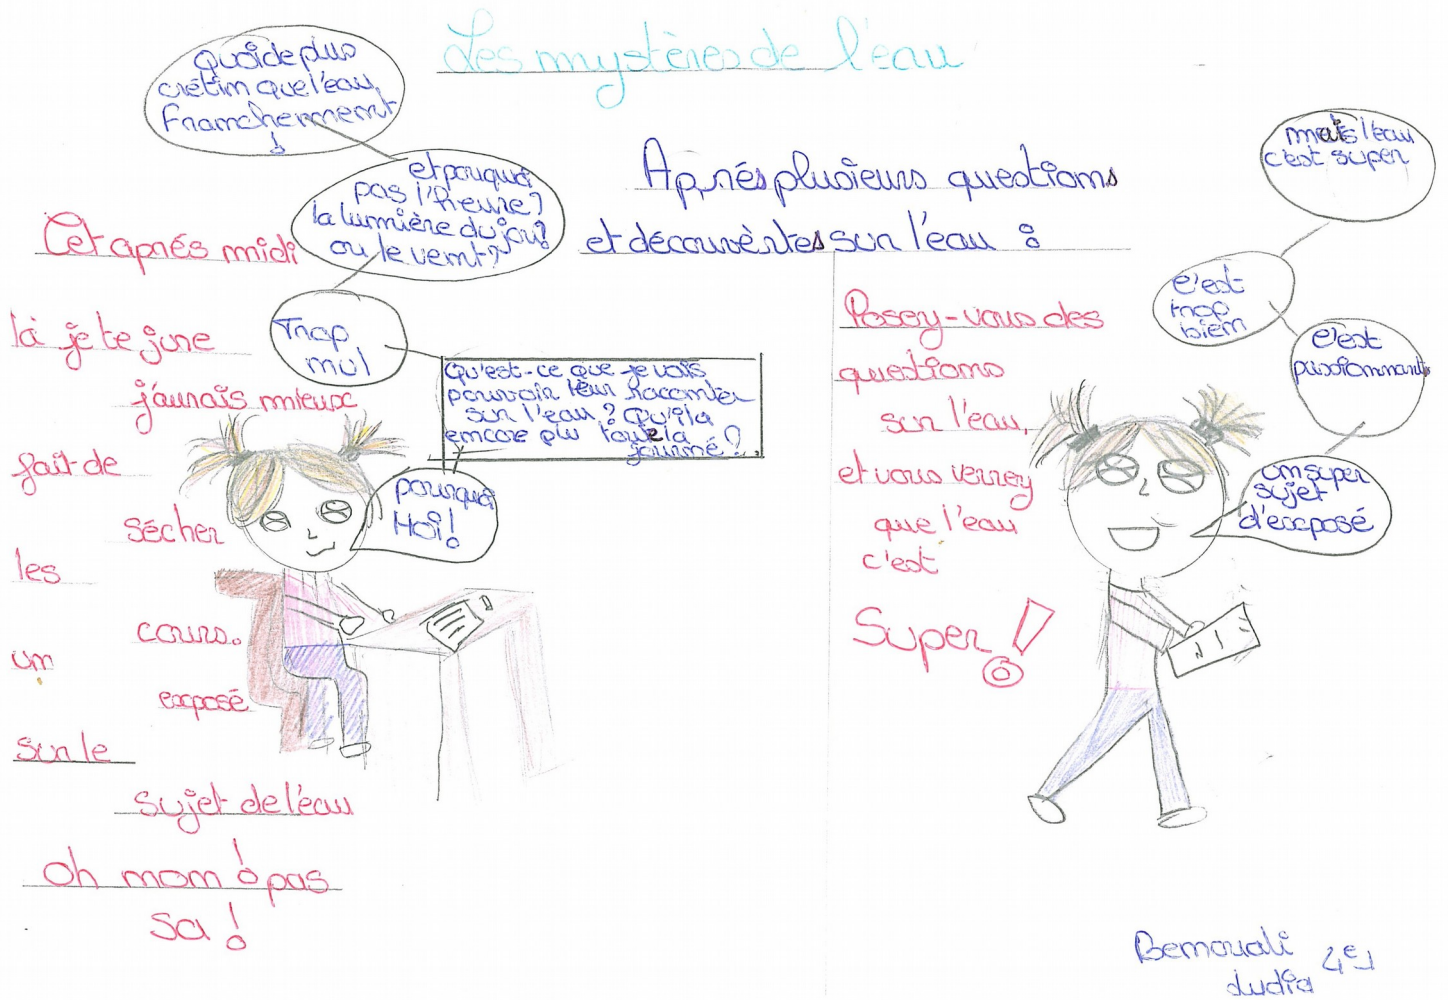 Les mystères de l'eau
Quoi de plus
crétin que l'eau,
Franchement
!
et pourquoi
pas l'heure?
la lumière du jour?
ou le vent?
Trop
nul
Qu'est-ce que je vais
pouvoir leur raconter
sur l'eau? Qu'il a
encore plu toute la
journé?
pourquoi
Moi!
Cet aprés midi
là je te jure
j'aurais mieux
fait de
sécher
les
cours.
un
exposé
sur le
sujet de l'eau
oh non! pas
sa!
Aprés plusieurs questions
et découvèrtes sur l'eau :
Posez-vous des
questions
sur l'eau,
et vous verrez
que l'eau
c'est
Super!
mais l'eau
c'est super
c'est
trop
bien
c'est
passionnant
un super
sujet
d'exposé
Benouali
Lydia 4e1